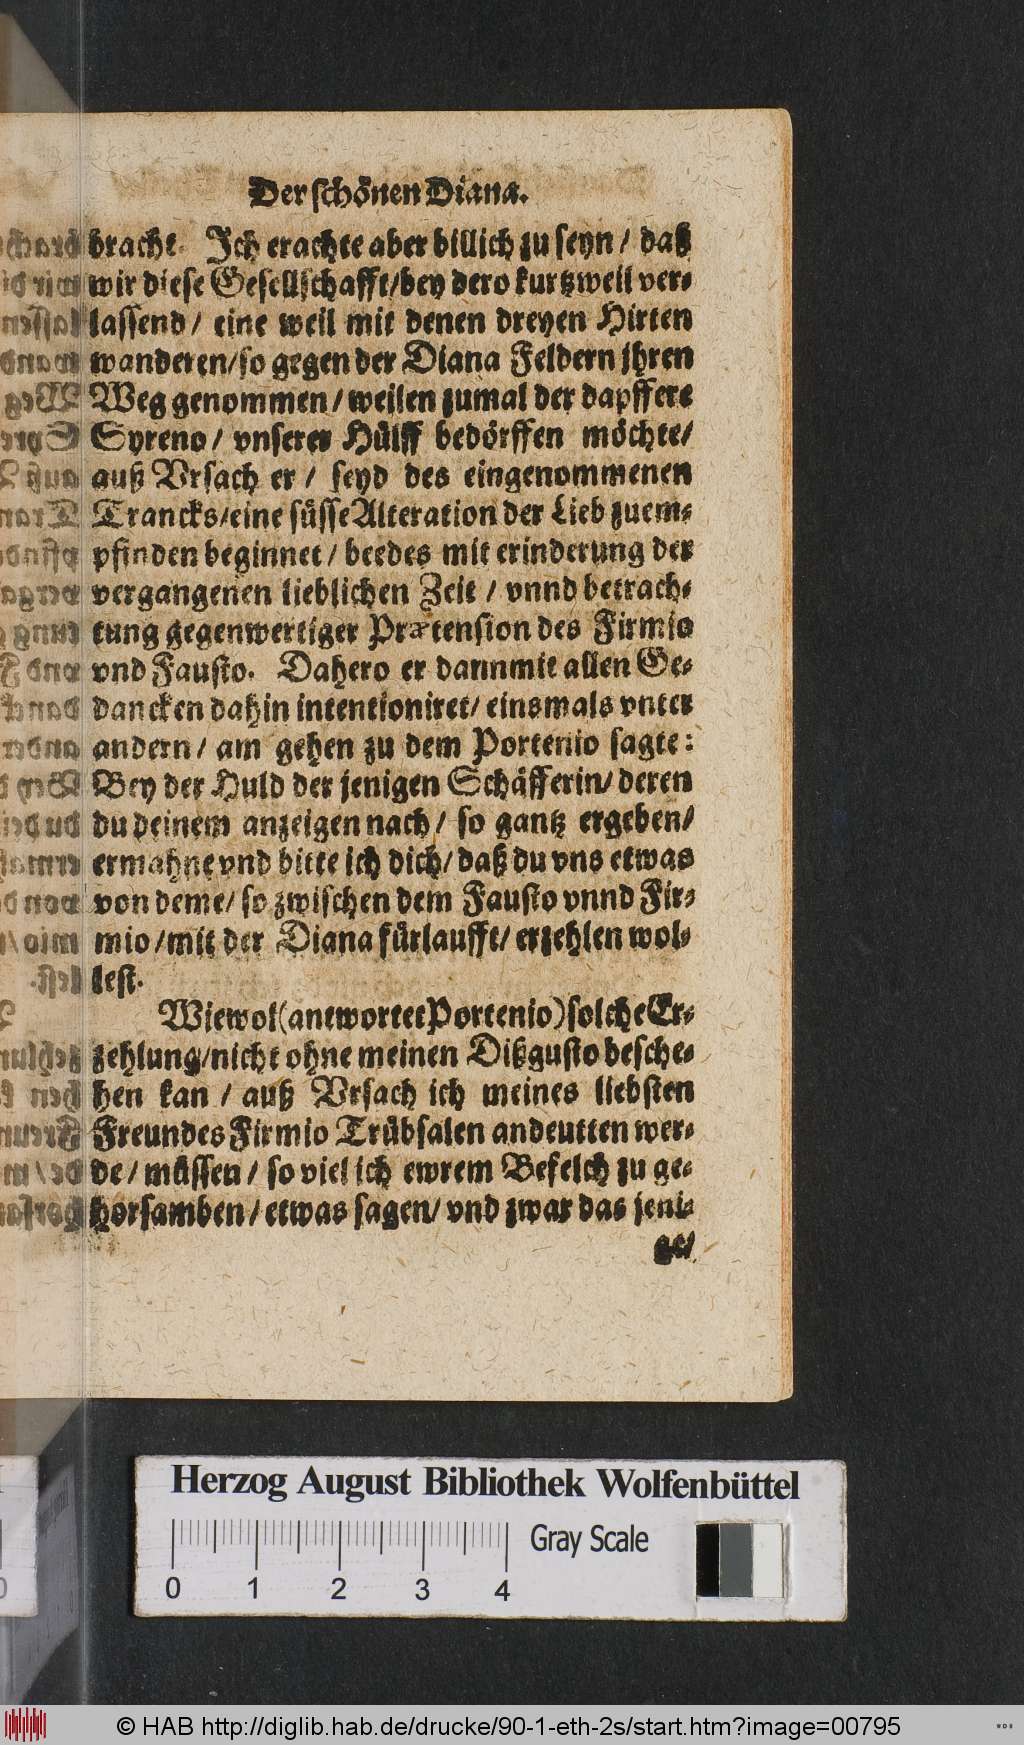 Der schönen Diana.
bracht. Ich erachte aber billich zu seyn / daß
wir diese Gesellschafft/bey dero kurtzweil ver-
lassend / eine weil mit denen dreyen Hirten
wanderen/so gegen der Diana Feldern jhren
Weg genommen / weilen zumal der dapffere
Syreno / vnserer Hülff bedörffen möchte/
auß Vrsach er / seyd des eingenommenen
Trancks/eine süsse Alteration der Lieb zuem-
pfinden beginnet / beedes mit erinderung der
vergangenen lieblichen Zeit / vnnd betrach-
tung gegenwertiger Prætension des Firmio
vnd Fausto. Dahero er dann mit allen Ge-
dancken dahin intentioniret/ einsmals vnter
andern / am gehen zu dem Portenio sagte:
Bey der Huld der jenigen Schäfferin/ deren
du deinem anzeigen nach / so gantz ergeben/
ermahne vnd bitte ich dich/ daß du vns etwas
von deme/ so zwischen dem Fausto vnnd Fir-
mio /mit der Diana fürlaufft/ erzehlen wol-
lest.
Wiewol (antwortet Portenio) solche Er-
zehlung/nicht ohne meinen Dißgusto besche-
hen kan / auß Vrsach ich meines liebsten
Freundes Firmio Trübsalen andeutten wer-
de / müssen / so viel ich ewrem Befelch zu ge-
horsamben / etwas sagen/ vnd zwar das jeni-
ge/
Herzog August Bibliothek Wolfenbüttel
Gray Scale
0 1 2 3 4
© HAB http://diglib.hab.de/drucke/90-1-eth-2s/start.htm?image=00795